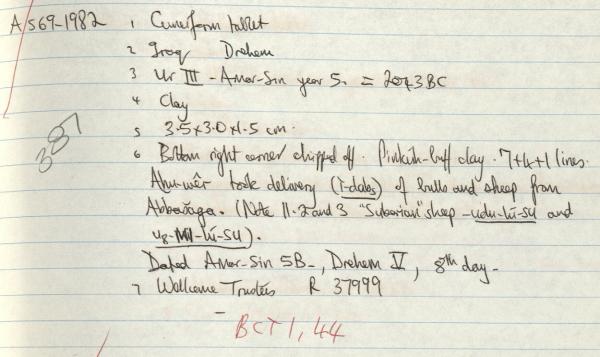 A 1569-1982 1 Cuneiform tablet
2 Iraq Drehem
3 Ur III - Amar-Sin year 5. = 2043 BC
4 Clay
5 3.5 x 3.0 x 1.5 cm.
387
6 Bottom right corner chipped off. Pinkish-buff clay. 7+4+1 lines.
Ahu-wêr took delivery (ì-dab5) of bulls and sheep from
Abbašaga. (Note ll. 2 and 3 "Subartian" sheep - udu-lú-sú and
u8-lú-sú).
Dated Amar-Sin 5B-, Drehem V, 8th day-
7 Wellcome Trustees R 37999
BCT 1, 44